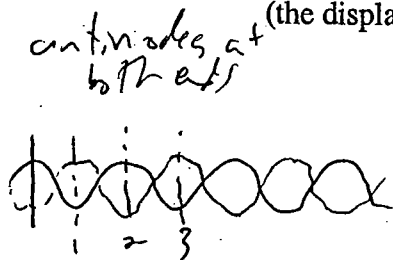 (the displa
antinodes at
both ends
1 2 3